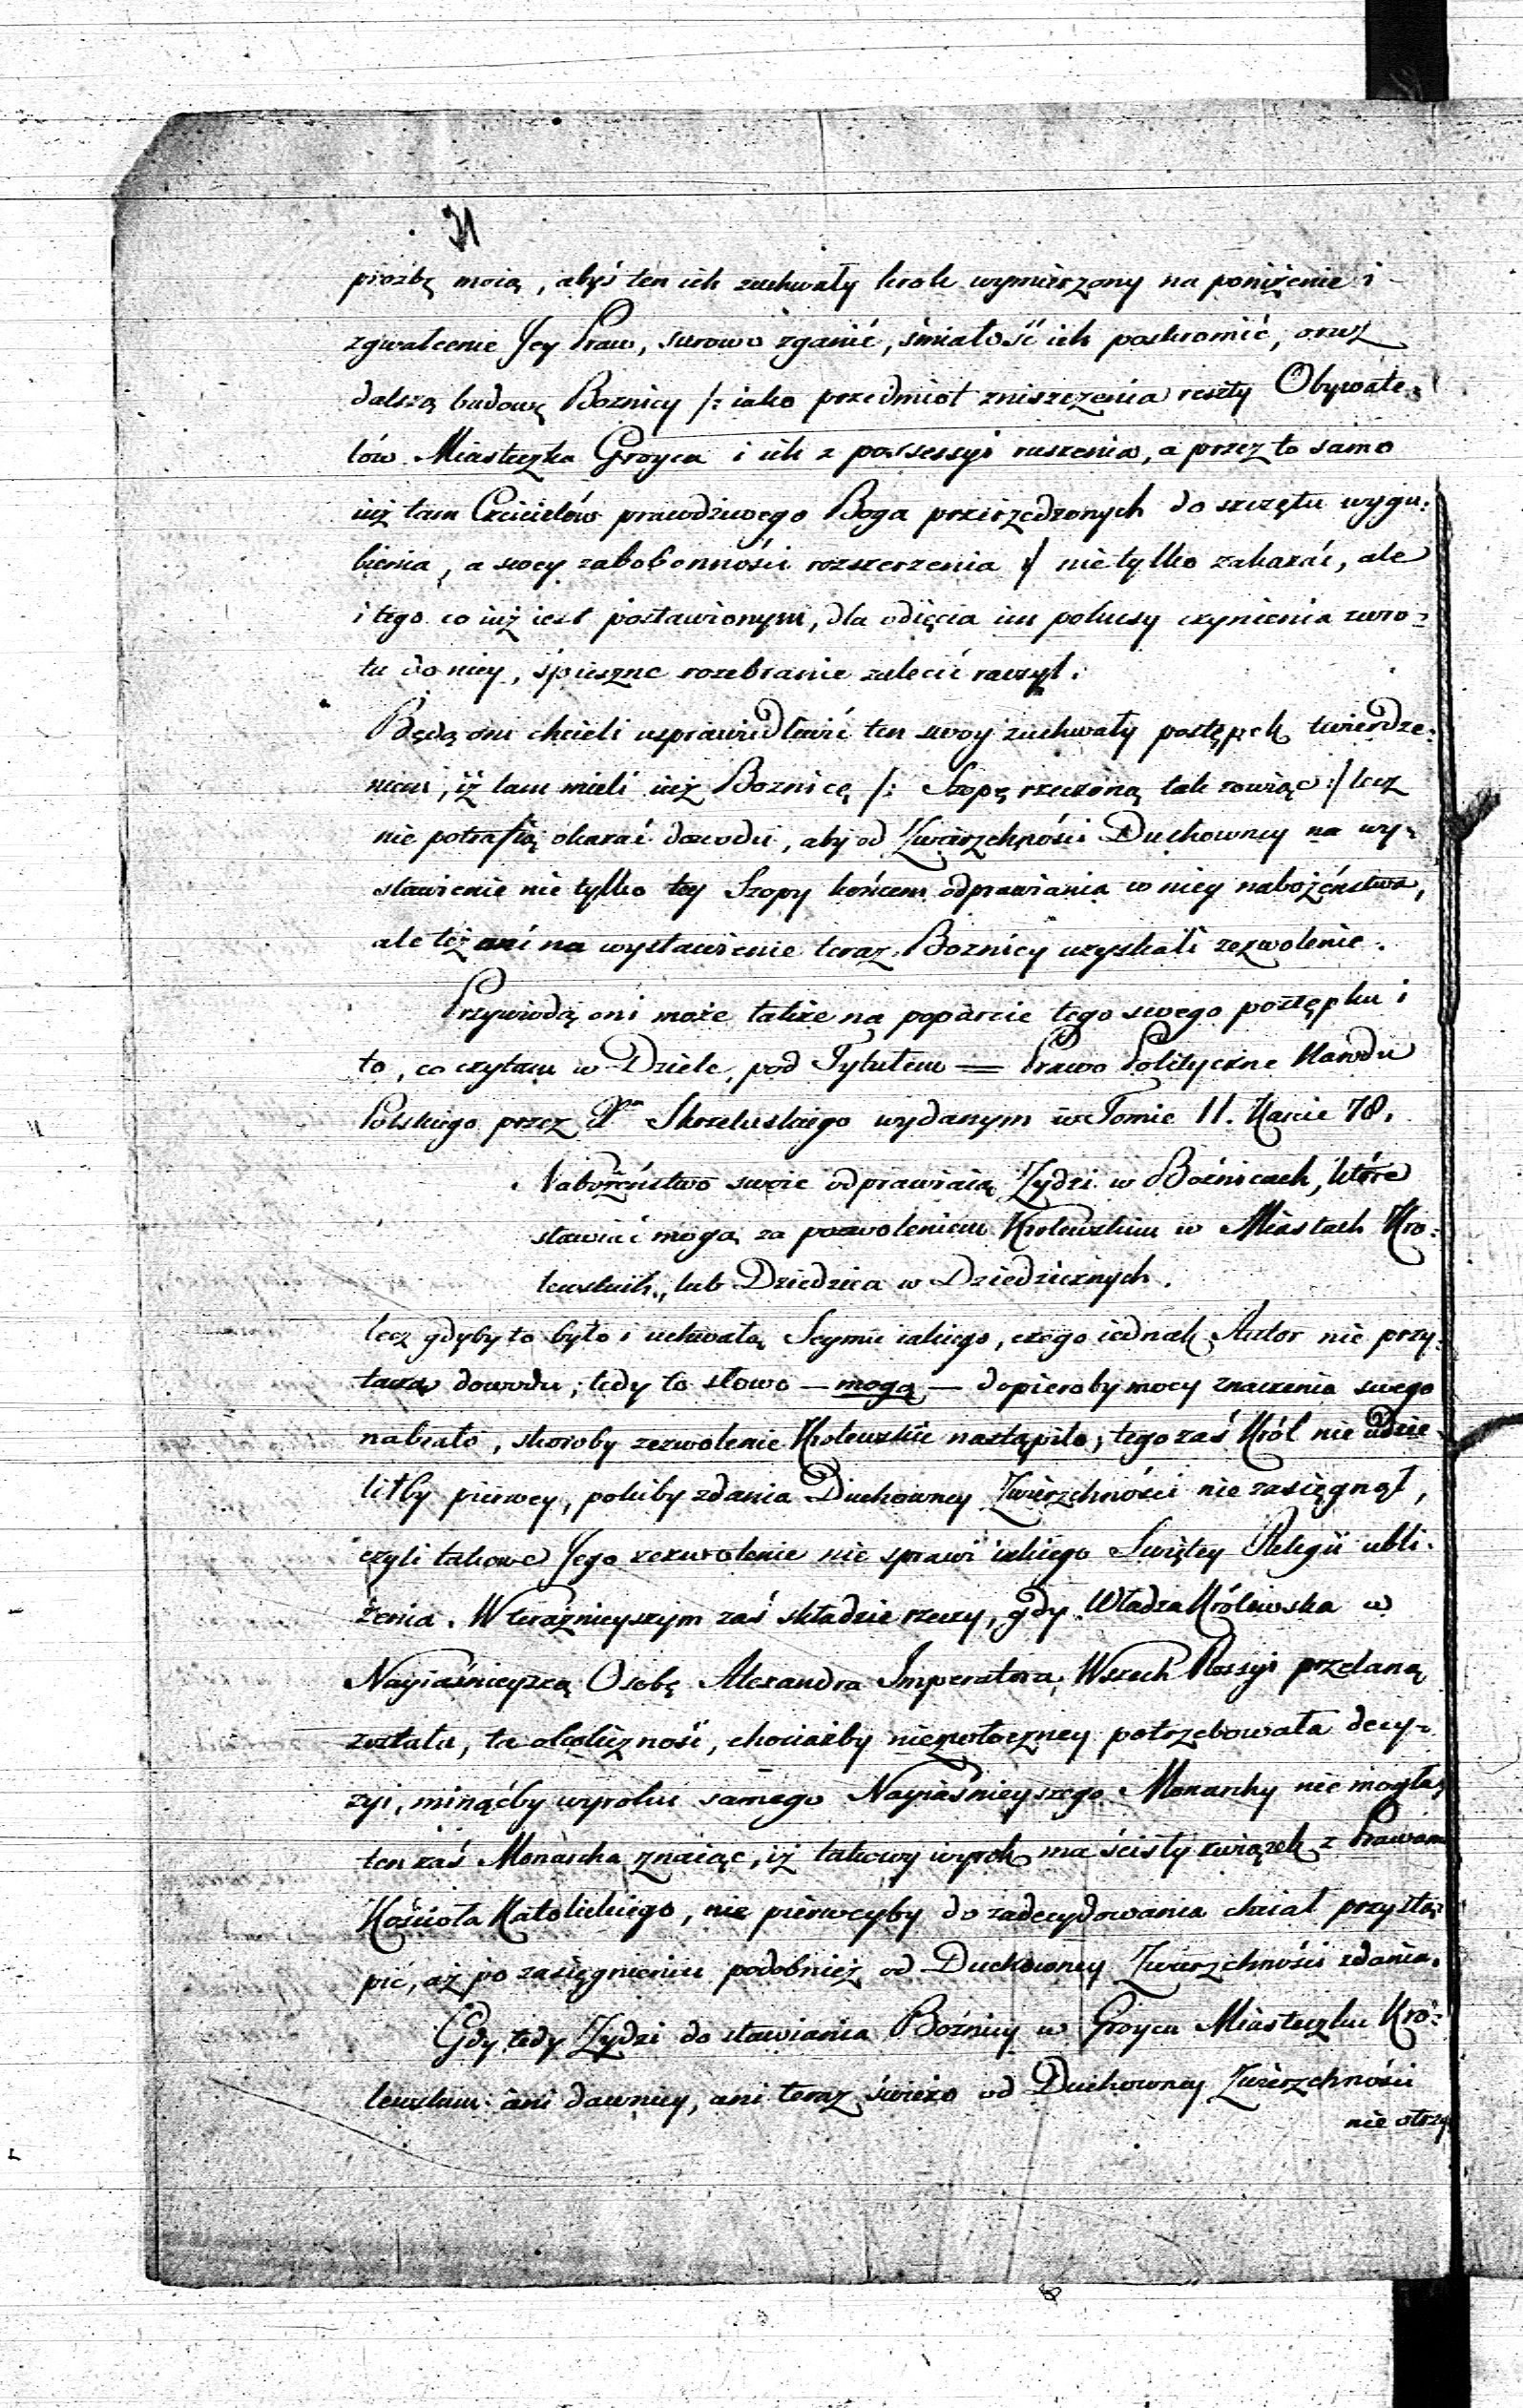 prozbę moią, abyś ten ich zuchwały krok wymierzony na poniżenie i
zgwałcenie Jey Praw, surowo zganić, śmiałość ich poskromić, oraz
dalszą budowę Boznicy /: iako przedmiot zniszczenia reszty Obywate:
lów Miasteczka Groyca i ich z possessyi ruszenia, a przez to samo
iuż tam Czcicielów prawdziwego Boga przerzedzonych do szczętu wygu:
bienia, a swey zabobonności rozszerzenia :/ nie tylko zakazać, ale
i tego co iuż iest postawionym, dla odięcia im pokusy czynienia zwro:
tu do niey, śpieszne rozebranie zalecić raczył.
Będą oni chcieli usprawiedliwić ten swoy zuchwały postępek twierdze:
niem, iż tam mieli iuż Boznicę /: Szopę rzeczoną tak zowiąc :/ lecz
nie potrafią okazać dowodu, aby od Zwierzchności Duchowney na wy:
stawienie nie tylko tey Szopy końcem odprawiania w niey nabożeństwa,
ale też ani na wystawienie teraz Boznicy uzyskali zezwolenie.
Przywiodą oni może także na poparcie tego swego postępku i
to, co czytam w Dziele, pod Tytułem = Prawo Polityczne Narodu
Polskiego przez Xa Skrzetuskiego wydanym w Tomie II. Karcie 78.
Nabożeństwo swoie odprawiaią Żydzi w Bóżnicach, które
stawiać mogą za pozwoleniem Krolewskim w Miastach Kro:
lewskich, lub Dziedzica w Dziedzicznych.
lecz gdyby to było i uchwałą Seymu iakiego, czego iednak Autor nie przy:
tacza dowodu; tedy to słowo — mogą — dopieroby mocy znaczenia swego
nabrało, skoroby zezwolenie Krolewskie nastąpiło; tego zaś Król nie udzie
liłby pierwey, pokiby zdania Duchowney Zwierzchności nie zasięgnął,
czyli takowe Jego zezwolenie nie sprawi iakiego Swiętey Religii ubli:
żenia. W teraźnieyszym zaś składzie rzeczy, gdy Władza Królewska w
Nayiaśnieyszą Osobę Alexandra Imperatora Wszech Rossyi przelaną
została, ta okoliczność, chociażby niezwłoczney potrzebowała decy:
zyi, minąćby wyroku samego Nayiaśnieyszego Monarchy nie mogła,
ten zaś Monarcha znaiąc, iż takowy wyrok ma ścisły związek z Prawami
Kościoła Katolickiego, nie pierweyby do zadecydowania chciał przystą:
pić, aż po zasięgnieniu podobnież od Duchowney Zwierzchności zdania.
Gdy tedy Żydzi do stawiania Bóżnicy w Groycu Miasteczku Kró:
lewskim ani dawniey, ani teraz świeżo od Duchowney Zwierzchności
nie otrzy